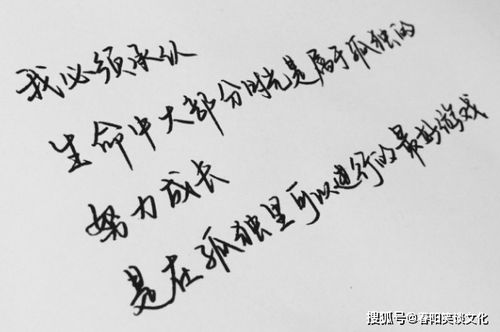 我必须承认
生命中大部分时光是属于孤独的
努力成长
是在孤独里可以进行的最好游戏
搜狐号@春阳笑谈文化